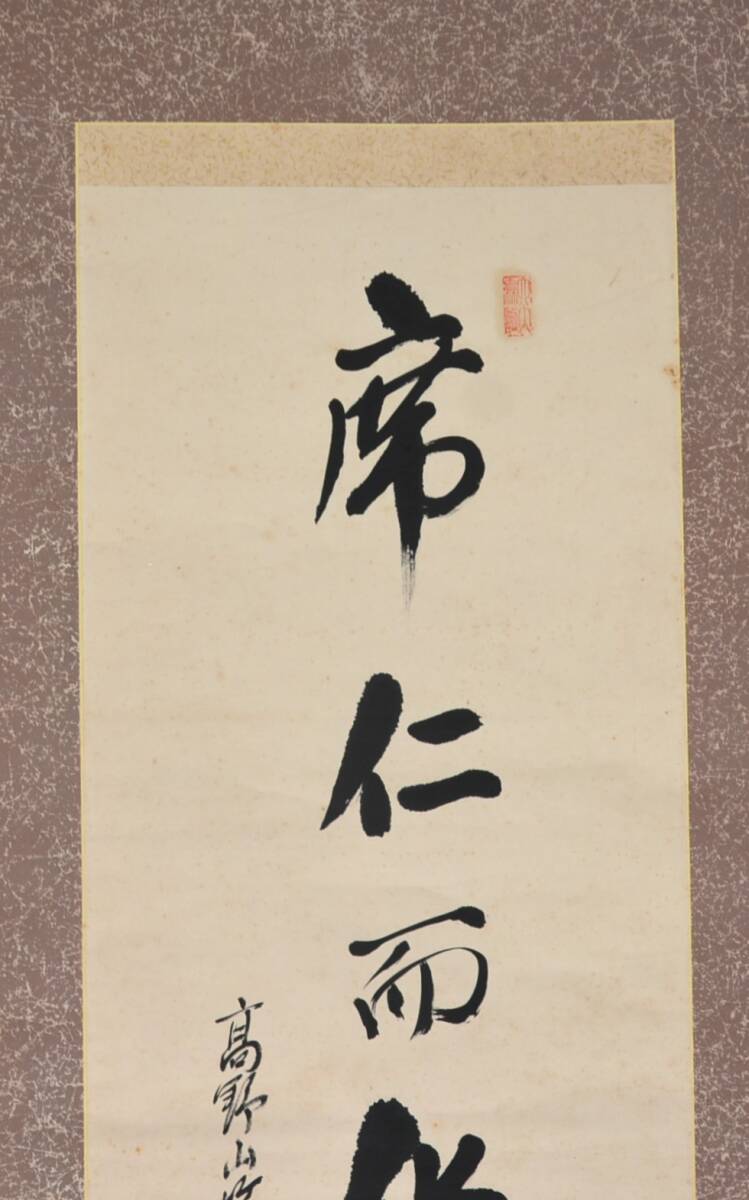 席仁而
高野山